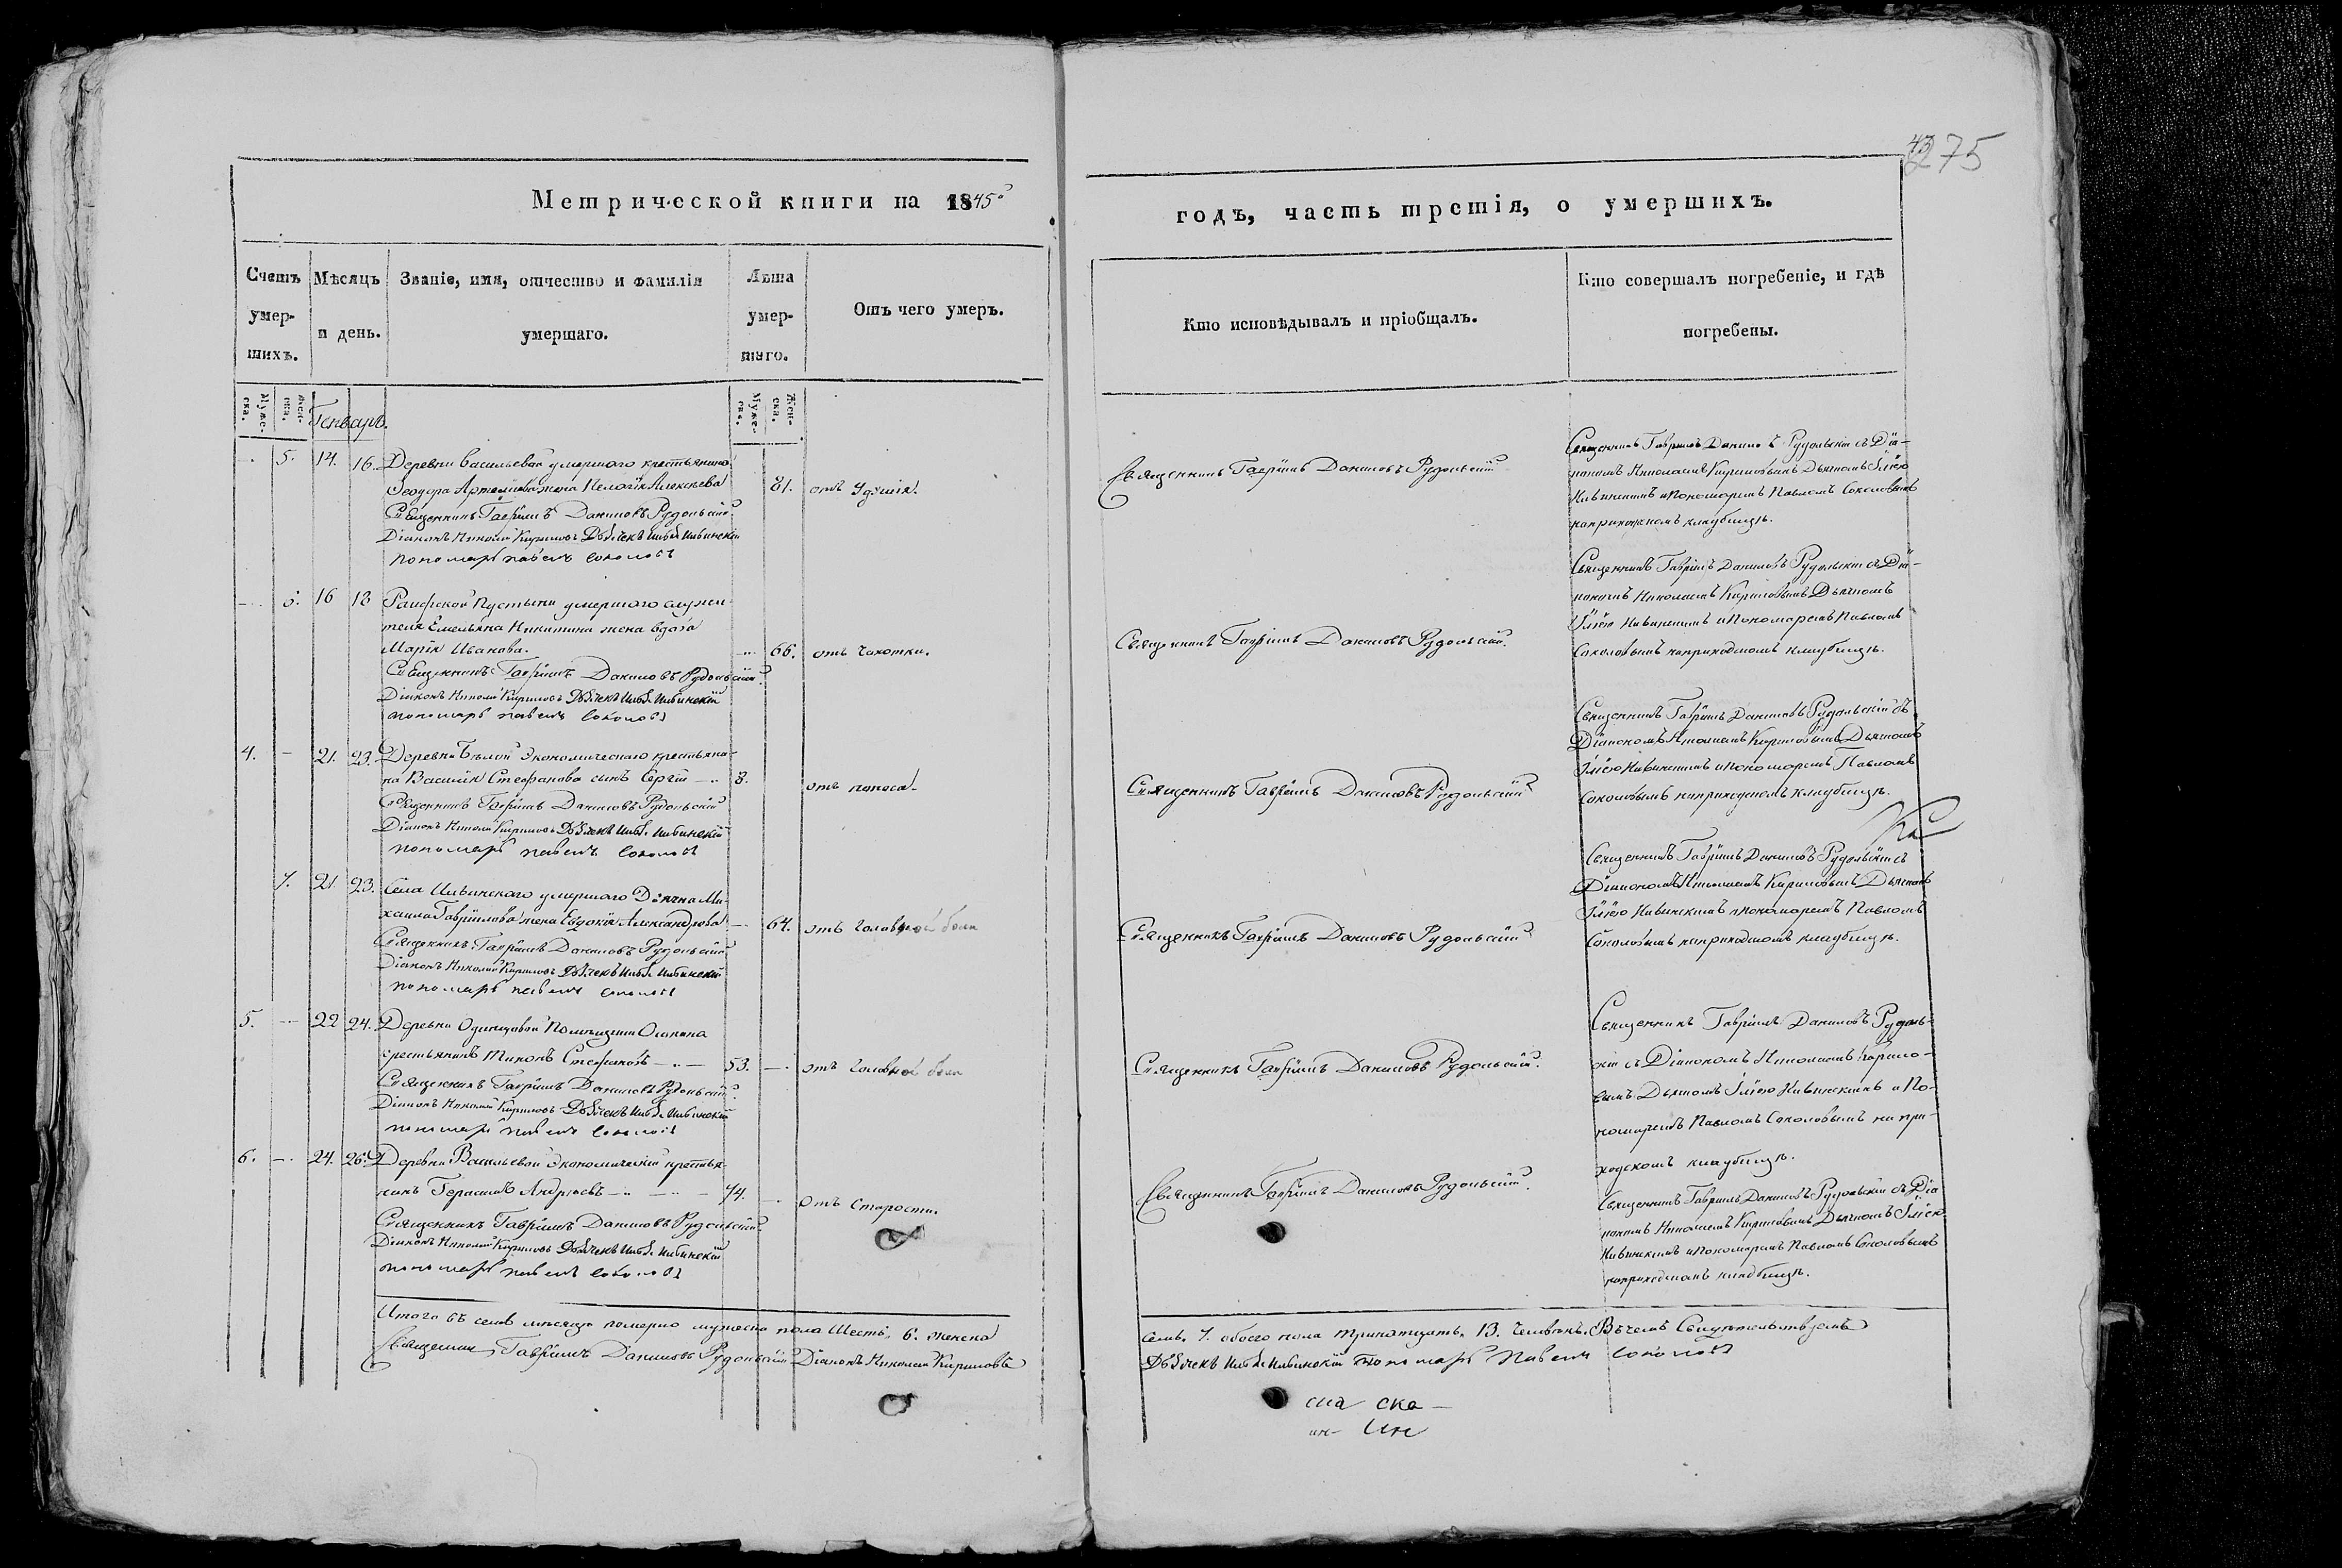 43
275
Метрической книги на 1845й
годъ, часть третія, о умершихъ.
Счетъ умер-шихъ.
Мѣсяцъ и день.
Званіе, имя, отчество и фамилія умершаго.
Лѣта умер-шаго.
Отъ чего умеръ.
Кто исповѣдывалъ и пріобщалъ.
Кто совершалъ погребеніе, и гдѣ погребены.
Муже-ска.
Жен-ска.
Генварь.
Муже-ска.
Жен-ска.
— 5. 14. 16. Деревни Васильевой умершаго крестьянина
Ѳеодора жена Пелагія Алексѣева 81. отъ Удушія.
Священникъ Гавріилъ Даниловъ Рудольскій
Діаконъ Николай Кириловъ Дьячекъ Илья Ильинскій
пономарь Павелъ Соколовъ
Священникъ Гавріилъ Даниловъ Рудольскій
Священникъ Гавріилъ Даниловъ Рудольскій съ Діа-
кономъ Николаемъ Кириловымъ Дьячкомъ Ильею
Ильинскимъ и Пономаремъ Павломъ Соколовымъ
на приходскомъ кладбищѣ.
— 6. 16 18 Раифской Пустыни умершаго служи-
теля Емельяна Никитина жена вдова
Марія Иванова. — 66. отъ Чахотки.
Священникъ Гавріилъ Даниловъ Рудольскій
Діаконъ Николай Кириловъ Дьячекъ Илья Ильинскій
пономарь Павелъ Соколовъ
Священникъ Гавріилъ Даниловъ Рудольскій.
Священникъ Гавріилъ Даниловъ Рудольскій съ Діа-
кономъ Николаемъ Кириловымъ Дьячкомъ
Ильею Ильинскимъ и Пономаремъ Павломъ
Соколовымъ на приходскомъ кладбищѣ.
4. — 21. 23. Деревни Бѣлой Экономическаго крестьяни-
на Василія Стефанова сынъ Сергій — 8. отъ поноса.
Священникъ Гавріилъ Даниловъ Рудольскій
Діаконъ Николай Кириловъ Дьячекъ Илья Ильинскій
пономарь Павелъ Соколовъ
Священникъ Гавріилъ Даниловъ Рудольскій
Священникъ Гавріилъ Даниловъ Рудольскій съ
Діакономъ Николаемъ Кириловымъ Дьячкомъ
Ильею Ильинскимъ и Пономаремъ Павломъ
Соколовымъ на приходскомъ кладбищѣ.
7. 21. 23. Села Ильинскаго умершаго Дьячка Ми-
хаила Гаврилова жена Евдокія Александрова — 64. отъ головной боли
Священникъ Гавріилъ Даниловъ Рудольскій
Діаконъ Николай Кириловъ Дьячекъ Илья Ильинскій
пономарь Павелъ Соколовъ
Священникъ Гавріилъ Даниловъ Рудольскій
Священникъ Гавріилъ Даниловъ Рудольскій съ
Діакономъ Николаемъ Кириловымъ Дьячкомъ
Ильею Ильинскимъ и Пономаремъ Павломъ
Соколовымъ на приходскомъ кладбищѣ.
5. — 22 24. Деревни Одинцовой Помѣщика
крестьянинъ Стефановъ — 53. — отъ головной боли
Священникъ Гавріилъ Даниловъ Рудольскій
Діаконъ Николай Кириловъ Дьячекъ Илья Ильинскій
пономарь Павелъ Соколовъ
Священникъ Гавріилъ Даниловъ Рудольскій.
Священникъ Гавріилъ Даниловъ Рудоль-
скій съ Діакономъ Николаемъ Кирило-
вымъ Дьячкомъ Ильею Ильинскимъ и По-
номаремъ Павломъ Соколовымъ на при-
ходскомъ кладбищѣ.
6. — 24. 26. Деревни Васильевой Экономическій крестья-
нинъ Герасимъ Андреевъ — 74. — отъ Старости.
Священникъ Гавріилъ Даниловъ Рудольскій
Діаконъ Николай Кириловъ Дьячекъ Илья Ильинскій
пономарь Павелъ Соколовъ
Священникъ Гавріилъ Даниловъ Рудольскій.
Священникъ Гавріилъ Даниловъ Рудольскій съ Діа
кономъ Николаемъ Кириловымъ Дьячкомъ Ильею
Ильинскимъ и Пономаремъ Павломъ Соколовымъ
на приходскомъ кладбищѣ.
Итого въ семъ мѣсяцѣ померло мужеска пола Шесть. 6. женска
семь. 7. обоего пола тринатцать. 13. Человѣкъ. Въ чемъ Свидѣтельствуемъ
Священникъ Гавріилъ Даниловъ Рудольскій Діаконъ Николай Кириловъ
Дьячекъ Илья Ильинскій Пономарь Павелъ Соколовъ